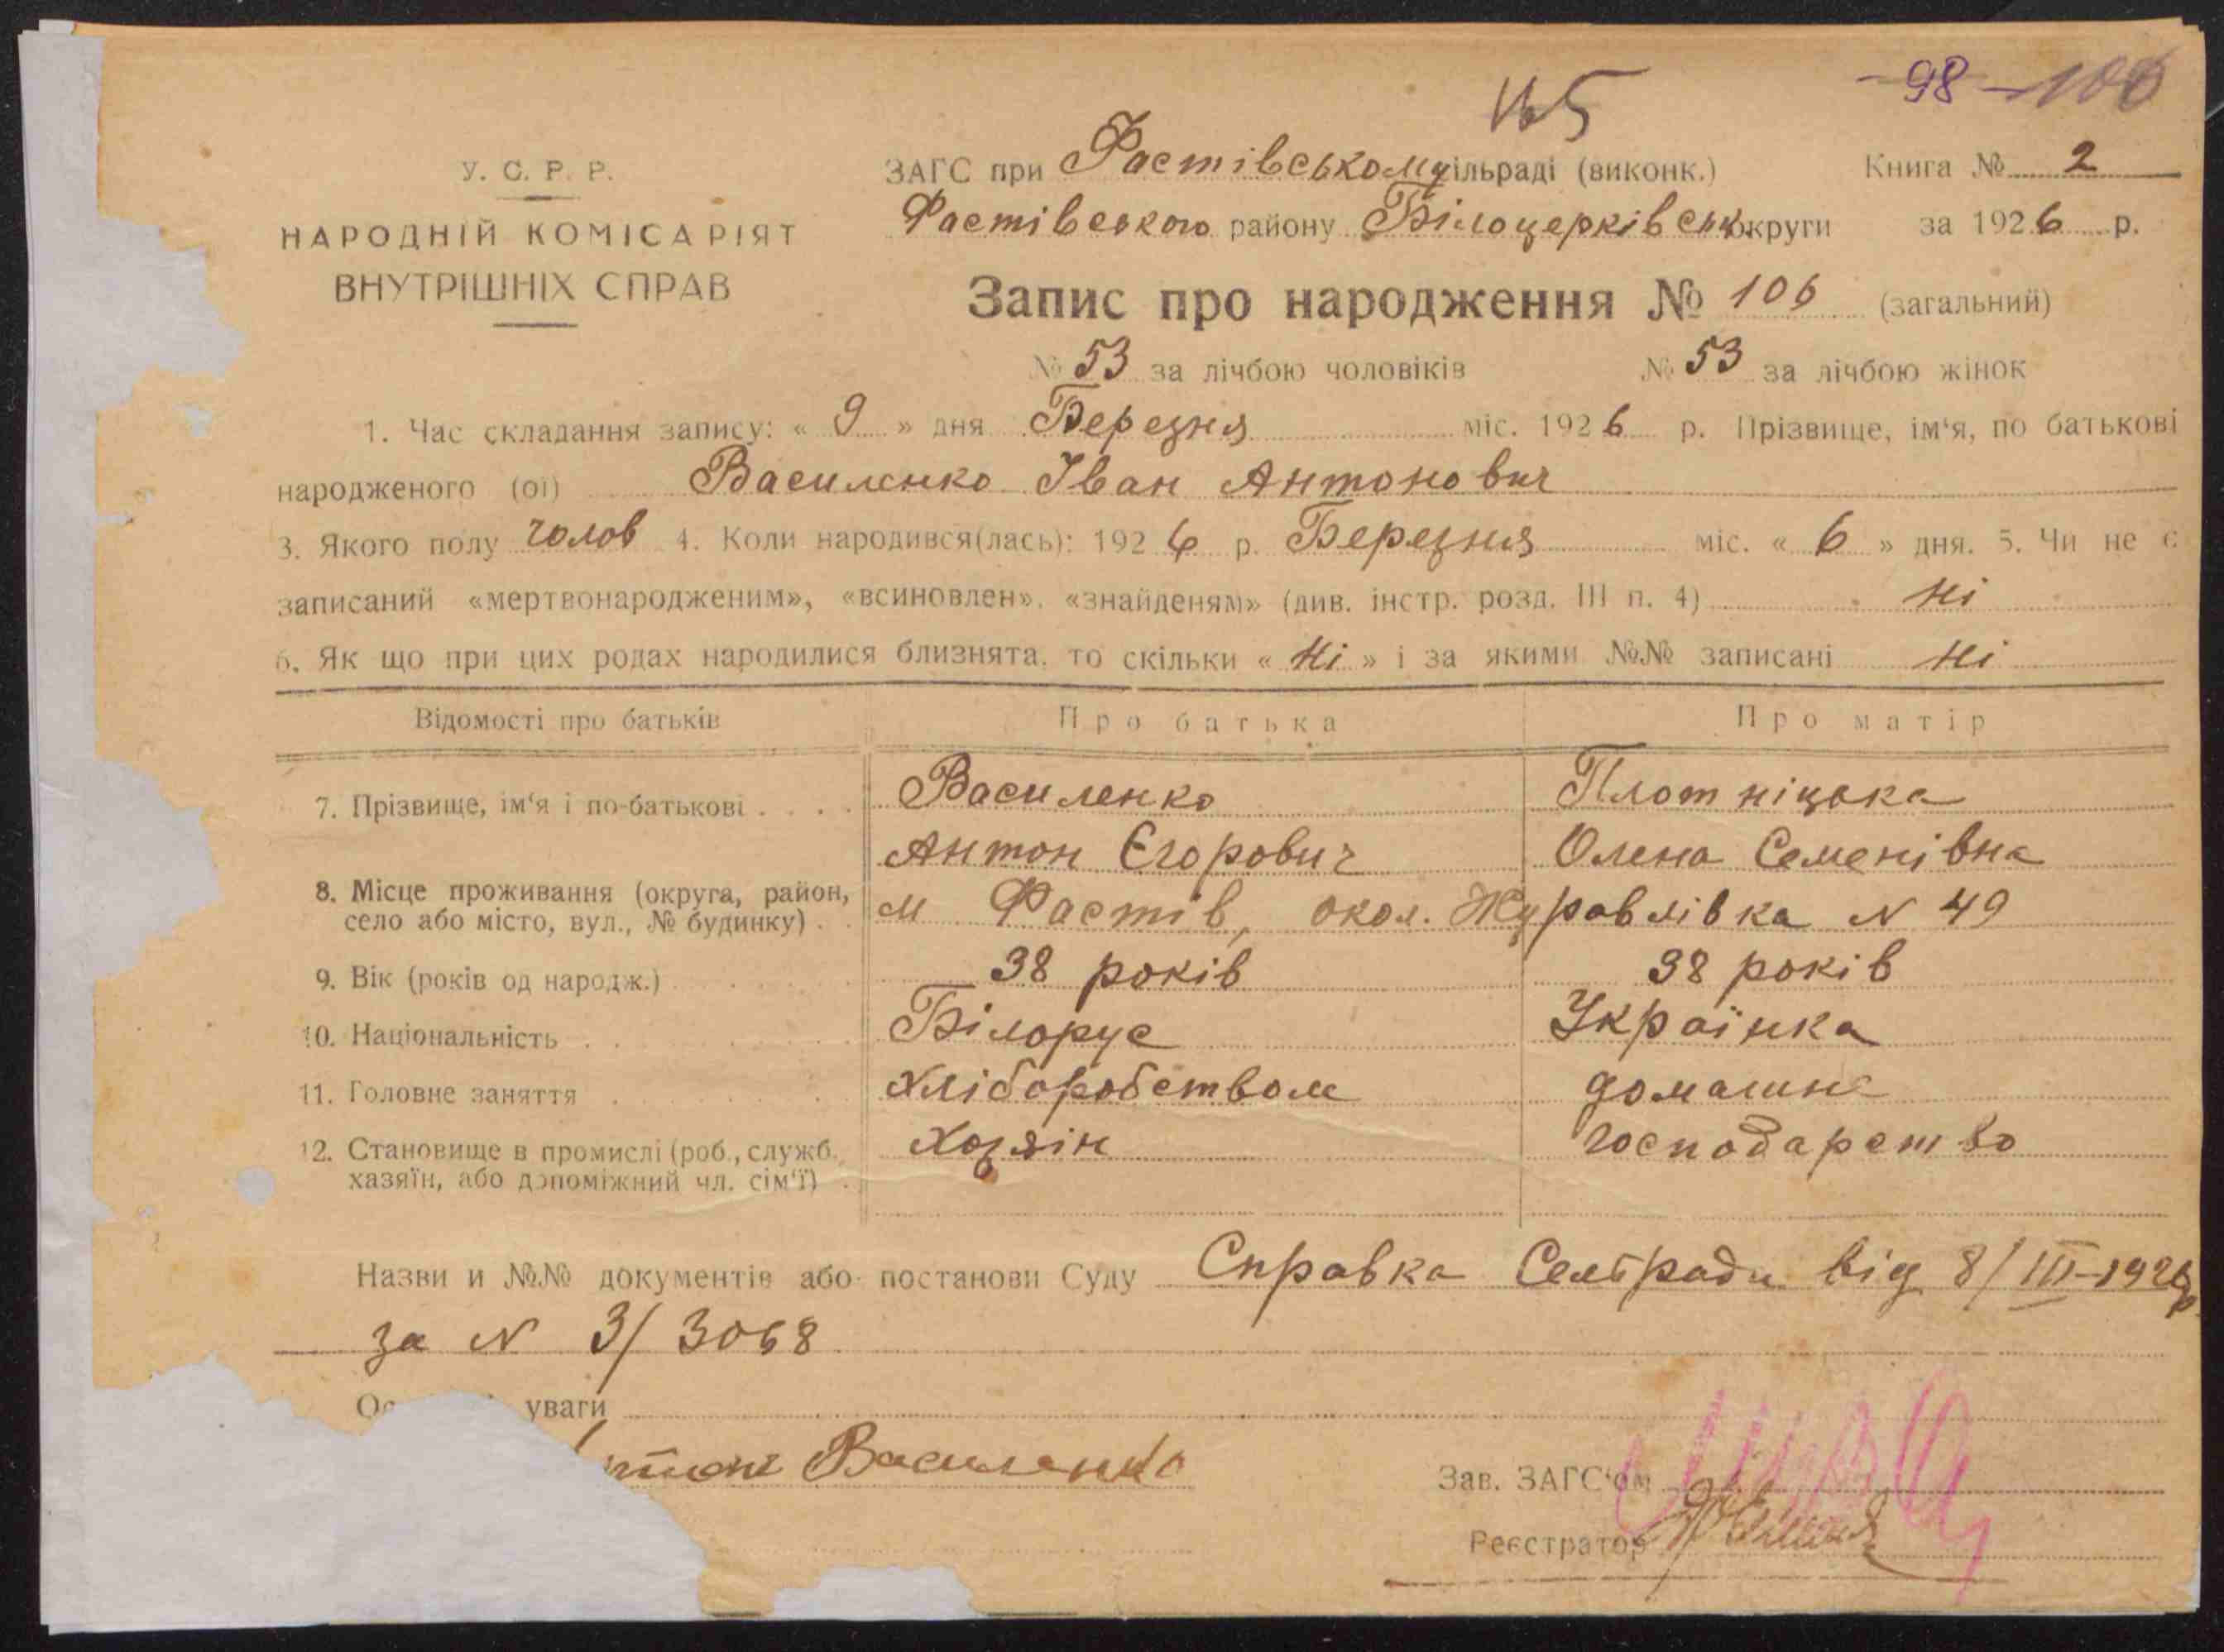 165
98 106
У. С. Р. Р.
НАРОДНІЙ КОМІСАРІЯТ
ВНУТРІШНІХ СПРАВ
ЗАГС при Фастівському сільраді (виконк.) Книга № 2
Фастівського району Білоцерківськ. округи за 1926 р.
Запис про народження № 106 (загальний)
№ 53 за лічбою чоловіків № 53 за лічбою жінок
1. Час складання запису: « 9 » дня Березня міс. 1926 р. Прізвище, ім'я, по батькові
народженого (ої) Василенко Іван Антонович
3. Якого полу чолов 4. Коли народився(лась): 1926 р. Березня міс. « 6 » дня. 5. Чи не є
записаний «мертвонародженим», «всиновлен», «знайденям» (див. інстр. розд. III п. 4) Ні
6. Як що при цих родах народилися близнята, то скільки « Ні » і за якими №№ записані Ні
Відомості про батьків Про батька Про матір
7. Прізвище, ім'я і по-батькові Василенко Плотніцька
Антон Єгорович Олена Семенівна
8. Місце проживання (округа, район,
село або місто, вул., № будинку) м Фастів, окол. Журавлівка N 49
9. Вік (років од народж.) 38 років 38 років
10. Національність Білорус Українка
11. Головне заняття Хліборобством домашнє
12. Становище в промислі (роб., служб. Хозяін господарство
хазяїн, або допоміжний чл. сім'ї)
Назви и №№ документів або постанови Суду Справка Сельради від 8/III-1926р
за N 3/3068
уваги
Василенко
Зав. ЗАГС'ом
Реєстратор